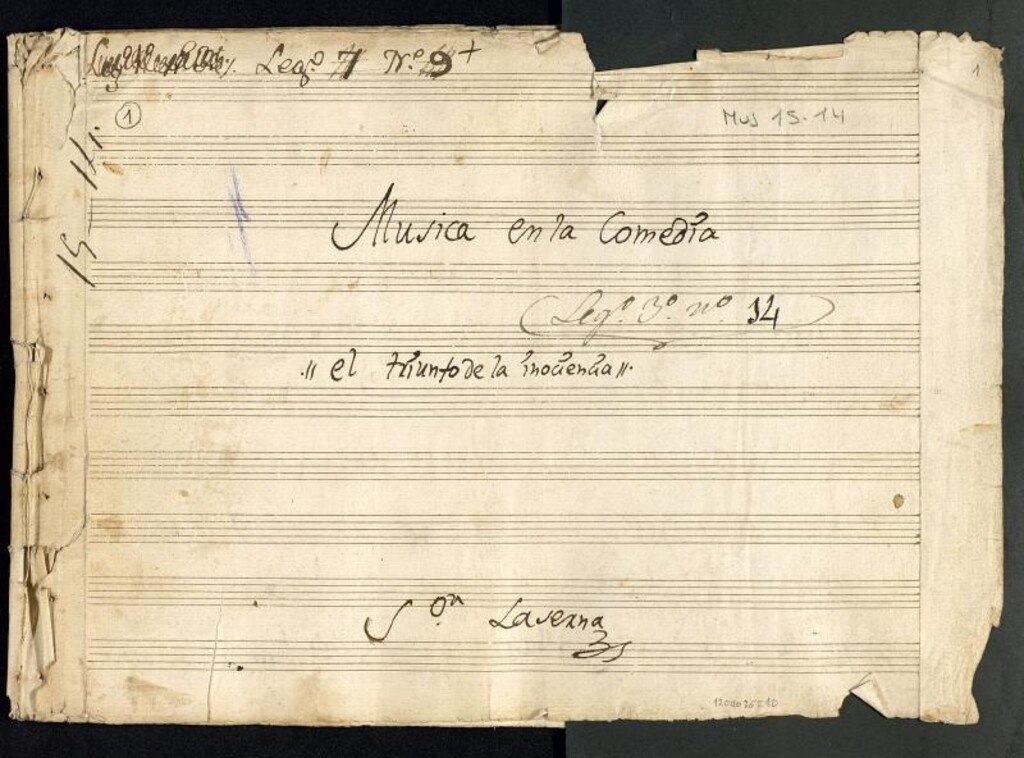 Legº. 7 Nº. 9 +
1
1
Mus 15-14
15-14.
Musica en la Comedia
Legº. 3º. nº. 14
.॥ el triunfo de la inocencia ॥.
S.ᵒʳ Laserna